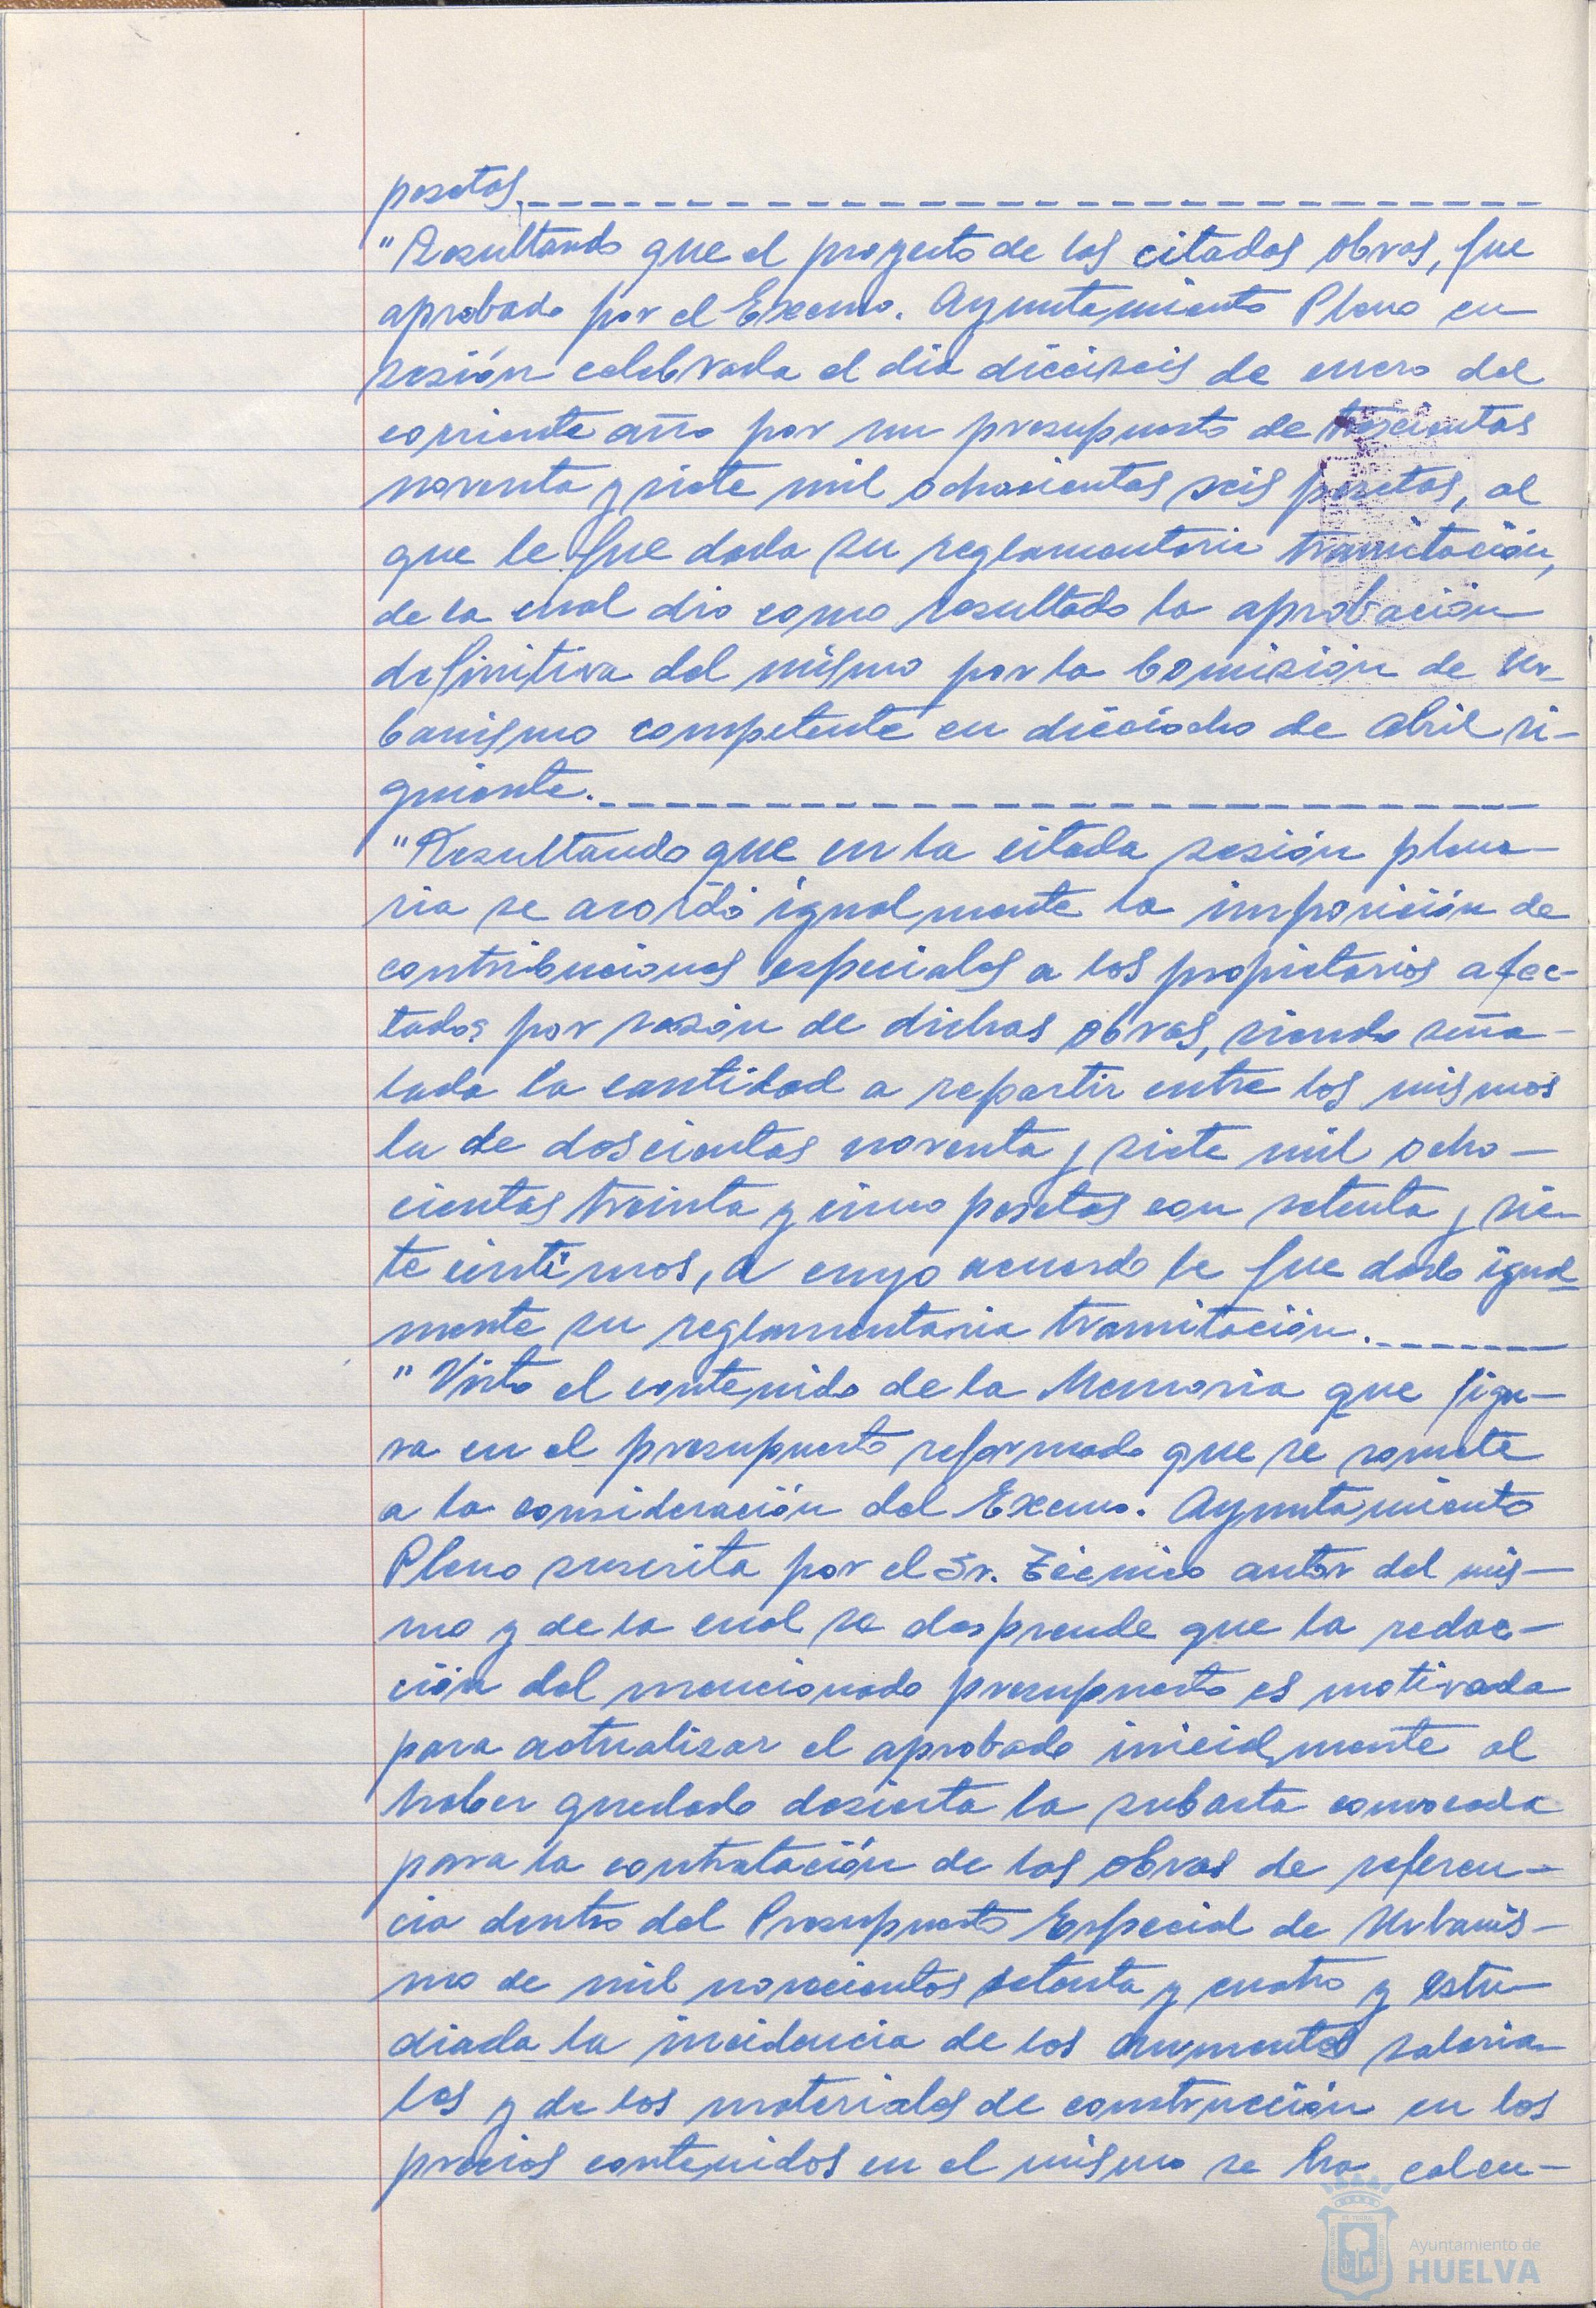 pesetas.
"Resultando que el proyecto de las citadas obras, fue
aprobado por el Excmo. Ayuntamiento Pleno en
sesión celebrada el día dieciseis de enero del
corriente año por un presupuesto de trescientas
noventa y siete mil ochocientas seis pesetas, al
que le fue dada su reglamentaria tramitación,
de la cual dio como resultado la aprobación
definitiva del mismo por la Comisión de Ur-
banismo competente en dieciocho de abril si-
guiente.
"Resultando que en la citada sesión plena-
ria se acordó igualmente la imposición de
contribuciones especiales a los propietarios afec-
tados por razón de dichas obras, siendo seña-
lada la cantidad a repartir entre los mismos
la de doscientas noventa y siete mil ocho-
cientas treinta y cinco pesetas con setenta y sie-
te céntimos, a cuyo acuerdo le fue dada igual
mente su reglamentaria tramitación.
"Visto el contenido de la Memoria que figu-
ra en el presupuesto reformado que se somete
a la consideración del Excmo. Ayuntamiento
Pleno suscrita por el Sr. Técnico autor del mis-
mo y de la cual se desprende que la redac-
ción del mencionado presupuesto es motivada
para actualizar el aprobado inicialmente al
haber quedado desierta la subasta convocada
para la contratación de las obras de referen-
cia dentro del Presupuesto Especial de Urbanis-
mo de mil novecientos setenta y cuatro y estu-
diada la incidencia de los aumentos salaria-
les y de los materiales de construcción en los
precios contenidos en el mismo se ha calcu-
Ayuntamiento de
HUELVA